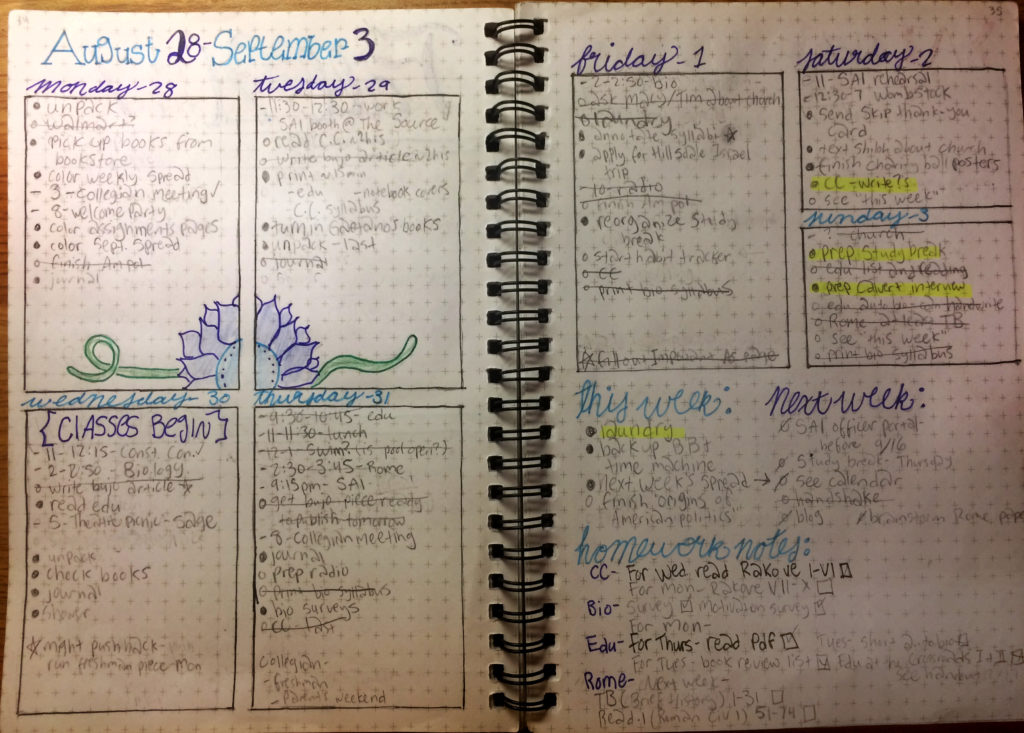 34
August 28-September 3
monday-28
• unpack
o walmart?
• pick up books from
bookstore
• color weekly spread
- 3-Collegian meeting ✓
- 8-welcome party
• color assignments pages
• color Sept. Spread
o finish Am pol
• journal
tuesday-29
-11:30-12:30-work
SAI booth @ The Source
• read C.C. this
• print
-edu -notebook covers
C.C. syllabus
• turn in Gaetano's books
• unpack-last
o journal
wednesday-30
{CLASSES BEGIN}
-11-12:15-Const. Con.
-2-2:50-Biology
o write bujo article
• read edu
- 5-Theatre Picnic-Sage
• unpack
• check books
• journal
• shower
* might push back-
run freshman piece Mon
thursday-31
-9:30-10:45-edu
-11-11:30-lunch
-12-1-swim? (is pool open?)
-2:30-3:45-Rome
-9:15pm-SAI
o get bujo piece ready
to publish tomorrow
-8-Collegian meeting
• journal
o prep radio
o print bio syllabus
• bio surveys
o CC-last
Collegian-
-freshman
-Parent's weekend
35
friday-1
-2-2:50-Bio
• ask Macy/Tim about church
o laundry
• annotate syllabi *
• apply for Hillsdale Israel
trip
-10-radio
o finish Am pol
• reorganize study
break
o start habit tracker
o CC
o print bio syllabus
saturday-2
-11-SAI rehearsal
-12:30-7 Wombstock
• send Skip thank-you
card
• text Shiloh about church
• finish charity ball posters
• CC-write ?s
o see "this week"
sunday-3
- ?-church
• prep study break
o edu list and reading
• prep Calvert interview
o Rome at least TB
o see this week
o print bio syllabus
this week:
• laundry
• back up BBJ
time machine
• next week's spread →
o finish "origins of
American politics"
next week:
o SAI officer portal-
before 9/16
o Study break-Thursday
o see calendar
o handshake
o blog brainstorm Rome
homework notes:
CC- For Wed read Rakove I-VI
For mon- Rakove VII-X
Bio- Survey motivation survey
For mon-
Edu- For Thurs- read Pdf Tues- short autobio
For Tues- book review, list Edu at the Crossroads I+II
see handout
Rome- Next week-
TB (Brief History) 1-31
Read. 1 (Roman Civ 1) 51-74